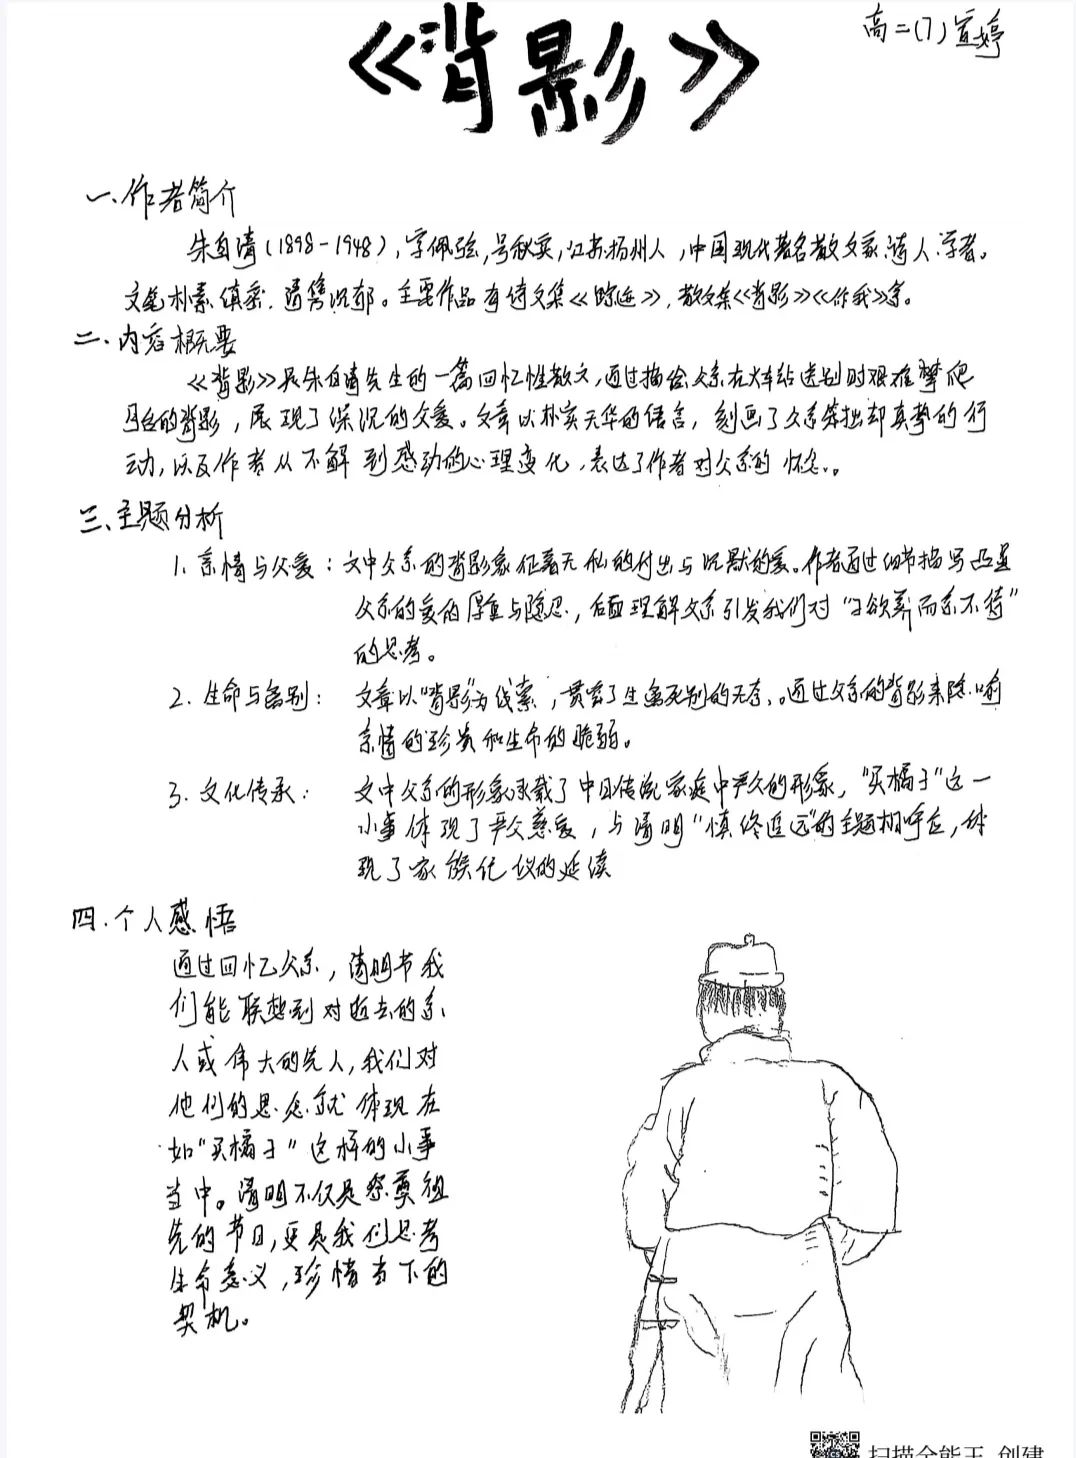 《背影》
高二(7) 宣婷
一、作者简介
朱自清(1898-1948),字佩弦,号秋实,江苏扬州人,中国现代著名散文家、诗人、学者。
文笔朴素缜密,清隽沉郁。主要作品有诗文集《踪迹》,散文集《背影》《你我》等。
二、内容概要
《背影》是朱自清先生的一篇回忆性散文,通过描绘父亲在火车站送别时艰难攀爬
月台的背影,展现了深沉的父爱。文章以朴实无华的语言,刻画了父亲笨拙却真挚的行
动,以及作者从不解到感动的心理变化,表达了作者对父亲的怀念。
三、主题分析
1. 亲情与父爱:文中父亲的背影象征着无私的付出与沉默的爱。作者通过细节描写凸显
父亲的爱的厚重与隐忍,后面理解父亲引发我们对“子欲养而亲不待”
的思考。
2. 生命与离别:文章以“背影”为线索,贯穿了生离死别的无奈。通过父亲的背影来隐喻
亲情的珍贵和生命的脆弱。
3. 文化传承:文中父亲的形象承载了中国传统家庭中严父的形象,“买橘子”这一
小事体现了严父慈爱,与清明“慎终追远”的主题相呼应,体
现了家族化仪的延续
四、个人感悟
通过回忆父亲,清明节我
们能联想到对逝去的亲
人或伟大的先人,我们对
他们的思念就体现在
如“买橘子”这样的小事
当中。清明不仅是祭奠祖
先的节日,更是我们思考
生命意义,珍惜当下的
契机。
扫描全能王 创建